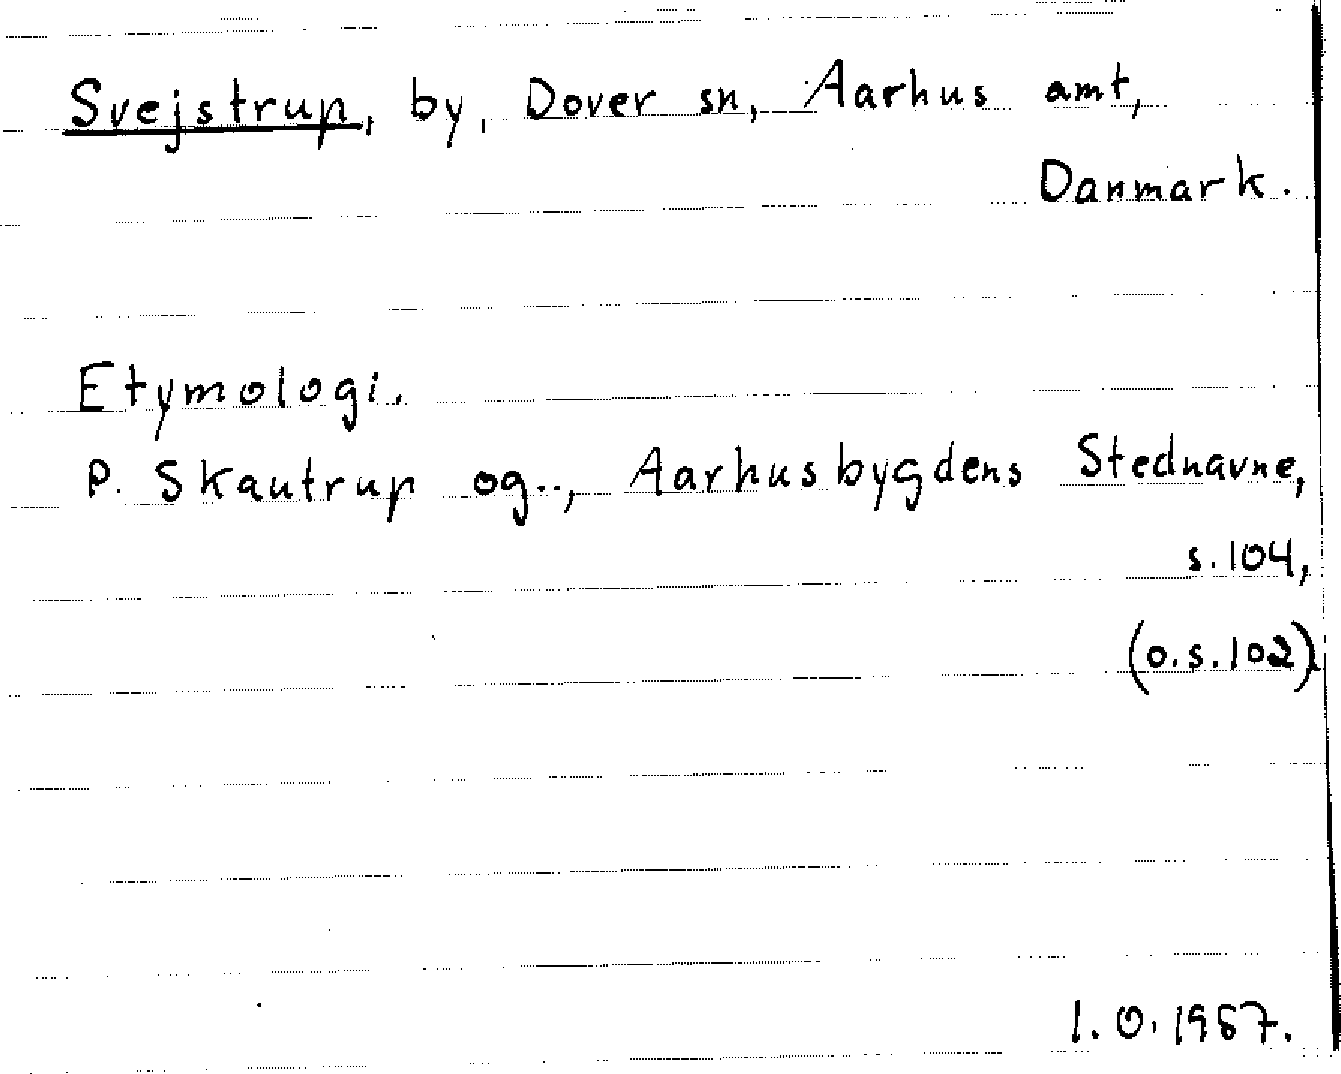 Svejstrup, by, Dover sn, Aarhus amt,
Danmark.
Etymologi.
P. Skautrup og.., Aarhusbygdens Stednavne,
s.104,
(o.s.102)
I.O. 1967.